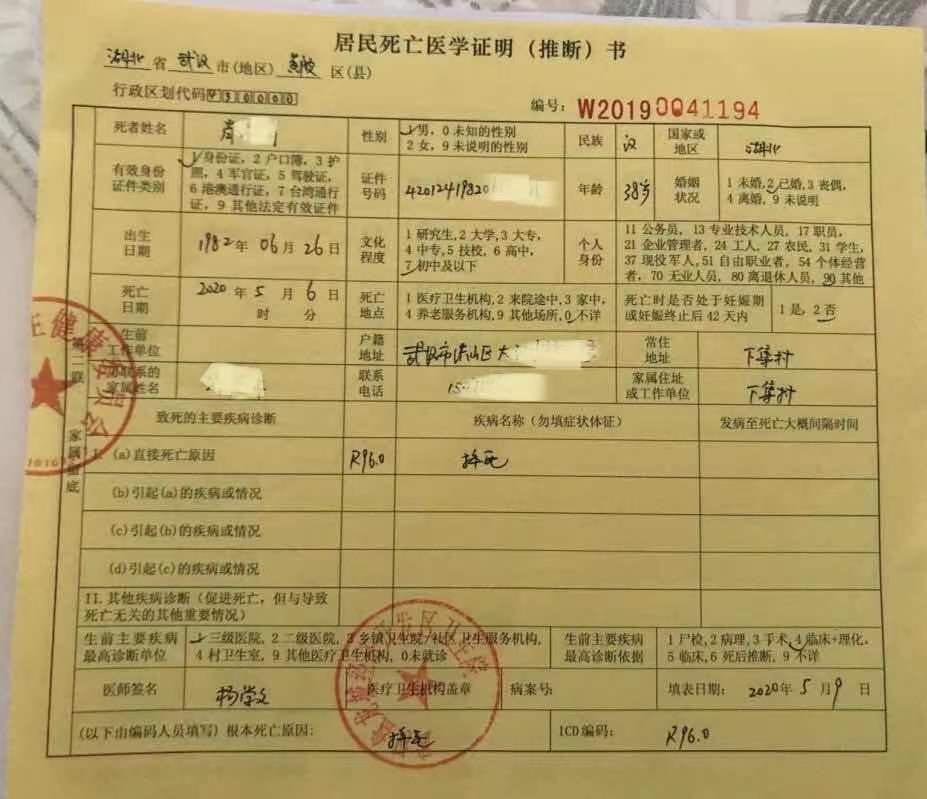 居民死亡医学证明（推断）书
湖北省武汉市(地区)黄陂区(县)
行政区划代码
编号：W20190041194
死者姓名
性别
1男，0未知的性别
2女，9未说明的性别
民族
汉
国家或
地区
湖北
有效身份
证件类别
1身份证，2户口簿，3护
照，4军官证，5驾驶证，
6港澳通行证，7台湾通行
证，9其他法定有效证件
证件
号码
42012419820
年龄
38岁
婚姻
状况
1未婚,2已婚,3丧偶,
4离婚，9未说明
出生
日期
1982年06月26日
文化
程度
1研究生,2大学,3大专,
4中专,5技校，6高中,
7初中及以下
个人
身份
11公务员，13专业技术人员，17职员，
21企业管理者，24工人，27农民，31学生，
37现役军人，51自由职业者，54个体经营
者，70无业人员，80离退休人员，90其他
死亡
日期
2020年5月6日
时 分
死亡
地点
1医疗卫生机构,2来院途中,3家中,
4养老服务机构,9其他场所,0不详
死亡时是否处于妊娠期
或妊娠终止后42天内
1是，2否
生前
工作单位
户籍
地址
武汉市洪山区大
常住
地址
下集村
联系的
家属姓名
联系
电话
家属住址
或工作单位
下集村
致死的主要疾病诊断
疾病名称（勿填症状体征）
发病至死亡大概间隔时间
(a)直接死亡原因
R96.0
猝死
(b)引起(a)的疾病或情况
(c)引起(b)的疾病或情况
(d)引起(c)的疾病或情况
II.其他疾病诊断（促进死亡，但与导致
死亡无关的其他重要情况）
生前主要疾病
最高诊断单位
1三级医院，2二级医院，3乡镇卫生院/社区卫生服务机构，
4村卫生室，9其他医疗卫生机构，0未就诊
生前主要疾病
最高诊断依据
1尸检,2病理,3手术,4临床+理化,
5临床,6死后推断，9不详
医师签名
医疗卫生机构盖章
病案号：
填表日期：2020年5月9日
(以下由编码人员填写）根本死亡原因：
猝死
ICD编码：
R96.0
第二联
家属留底
健康